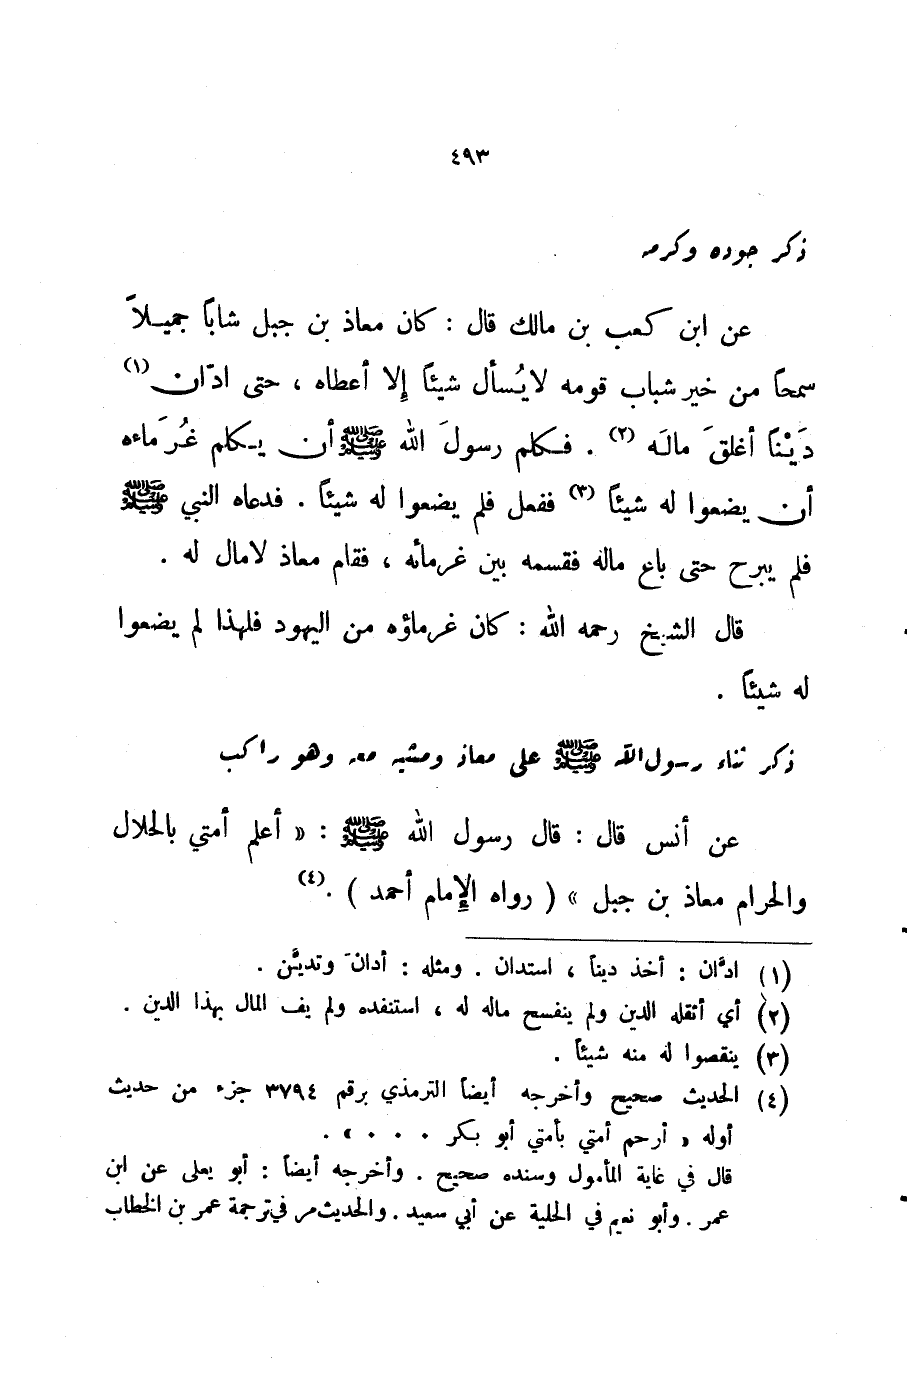 ٤٩٣
ذكر جوده وكرمه
عن ابن كعب بن مالك قال : كان معاذ بن جبل شاباً جميلاً
سمحاً من خير شباب قومه لا يُسأل شيئاً إلا أعطاه ، حتى ادّان (١)
دَيْناً أغلقَ مالَه (٢) . فكلم رسولَ الله ﷺ أن يكلم غُرَماءه
أن يضعوا له شيئاً (٣) ففعل فلم يضعوا له شيئاً . فدعاه النبي ﷺ
فلم يبرح حتى باع ماله فقسمه بين غرمائه ، فقام معاذ لا مال له .
قال الشيخ رحمه الله : كان غرماؤه من اليهود فلهذا لم يضعوا
له شيئاً .
ذكر ثناء رسول الله ﷺ على معاذ ومشيه معه وهو راكب
عن أنس قال : قال رسول الله ﷺ : « أعلم أمتي بالحلال
والحرام معاذ بن جبل » ( رواه الإمام أحمد ) . (٤)
(١) ادَّان : أخذ ديناً ، استدان . ومثله : أدانَ وتديَّن .
(٢) أي أثقله الدين ولم ينفسح ماله له ، استنفده ولم يف المال بهذا الدين .
(٣) ينقصوا له منه شيئاً .
(٤) الحديث صحيح وأخرجه أيضاً الترمذي برقم ٣٧٩٤ جزء من حديث
أوله « أرحم أمتي بأمتي أبو بكر . . . » .
قال في غاية المأمول وسنده صحيح . وأخرجه أيضاً : أبو يعلى عن ابن
عمر . وأبو نعيم في الحلية عن أبي سعيد . والحديث مر في ترجمة عمر بن الخطاب